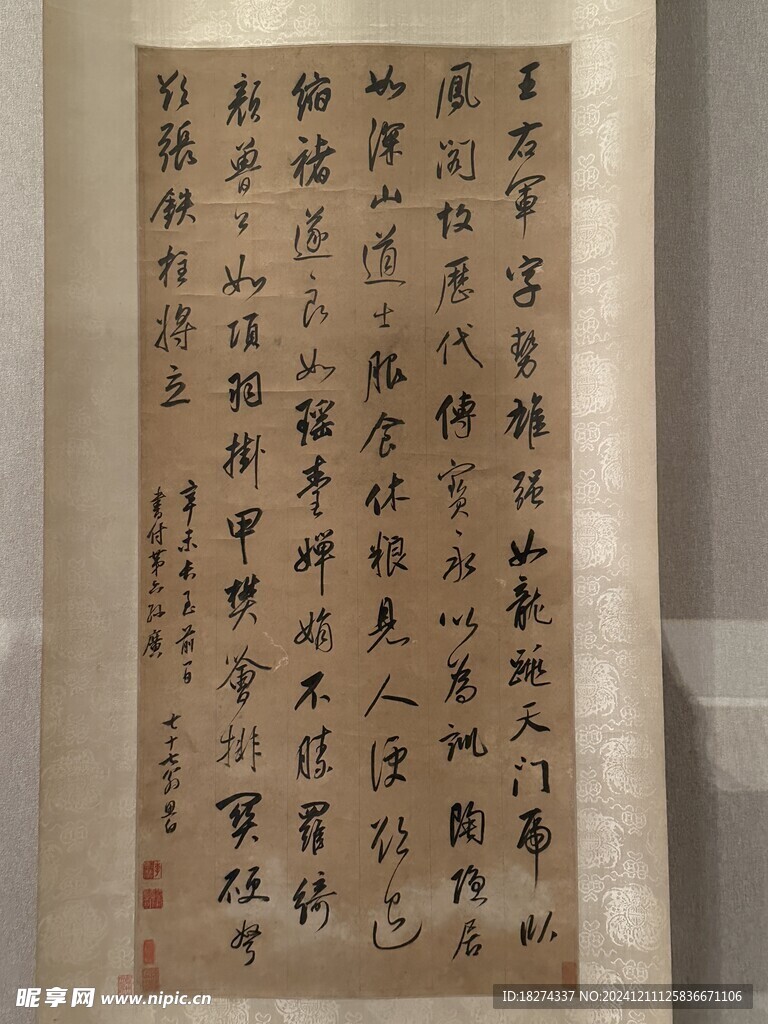 王右軍字勢雄强如龍跳天門虎臥
鳳閣故歷代傳寶永以為訓陶隱居
如深山道士服食休粮見人便欲退
縮褚遂良如瑶臺嬋娟不勝羅綺
顏魯公如項羽掛甲樊噲排突硬弩
欲張鉄柱將立
辛未長至前一日
書付第六孫廣
七十七翁
昵享网 www.nipic.cn
ID:18274337 NO:20241211125836671106